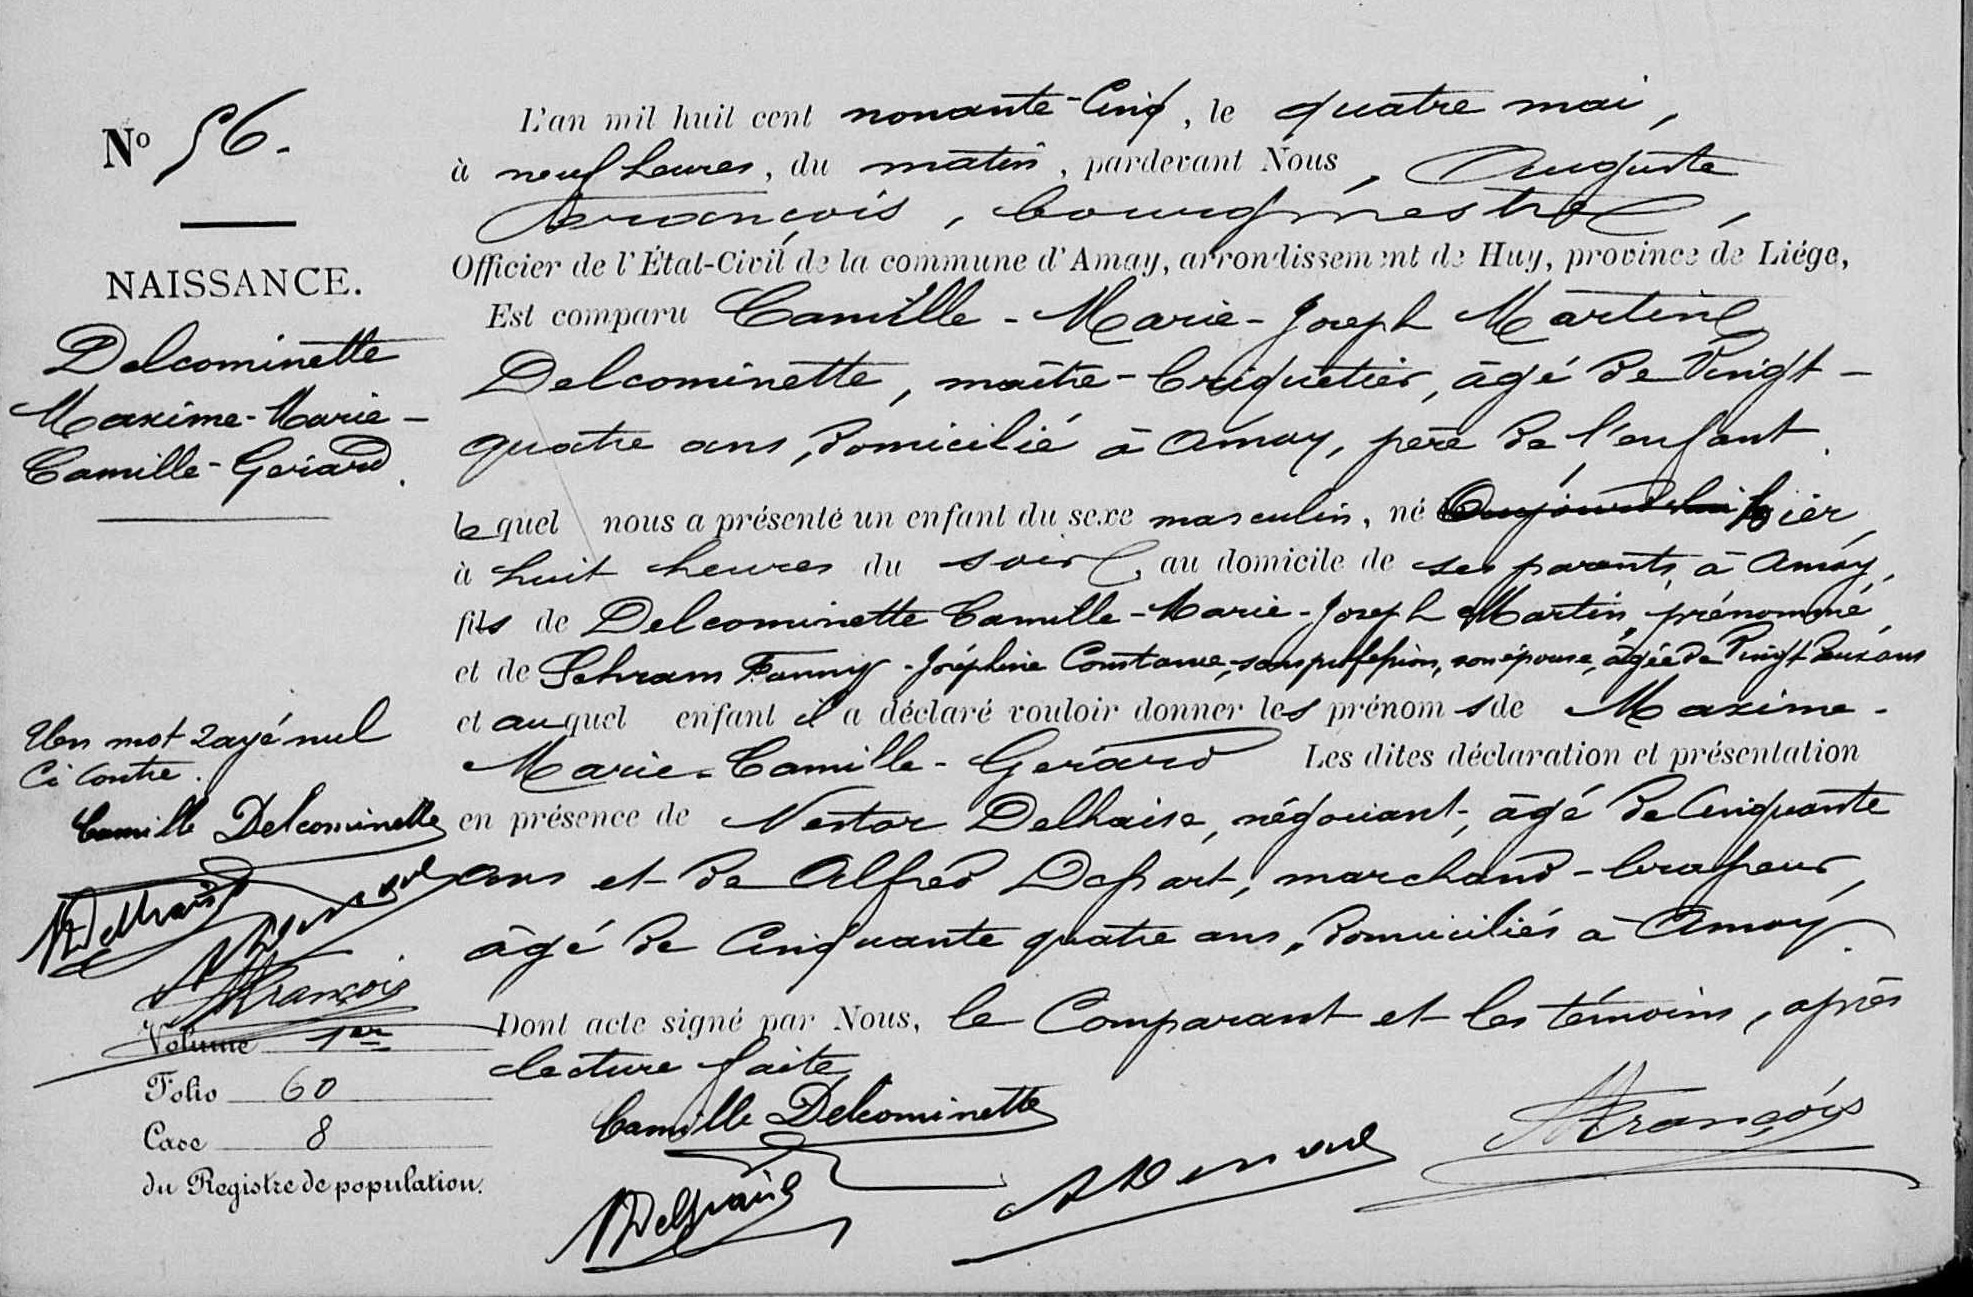 N° 56.
NAISSANCE.
Delcominette
Maxime-Marie-
Camille-Gerard.
L'an mil huit cent nonante-Cinq, le quatre mai,
à neuf heures, du matin, pardevant Nous, Auguste
François, bourgmestre,
Officier de l'État-Civil de la commune d'Amay, arrondissement de Huy, province de Liége,
Est comparu Camille-Marie-Joseph Martin
Delcominette, maître-briquetier, âgé de Vingt-
quatre ans, domicilié à Amay, père de l'enfant.
lequel nous a présenté un enfant du sexe masculin, né Aujourd'hui hier,
à huit heures du soir, au domicile de ses parents, à Amay,
fils de Delcominette Camille-Marie-Joseph Martin, prénommé,
et de Schram Fanny-Joséphine Constance, sans profession, son épouse, âgée de Vingt deux ans
et auquel enfant il a déclaré vouloir donner les prénoms de Maxime-
Marie-Camille-Gerard Les dites déclaration et présentation
en présence de Nestor Delhaise, négociant, âgé de Cinquante
ans et de Alfred, marchand-brasseur,
âgé de Cinquante quatre ans, domiciliés à Amay.
Dont acte signé par Nous, le Comparant et les témoins, après
lecture faite
Camille Delcominette
NDelhaise
AFrançois
Un mot rayé nul
Ci contre.
Camille Delcominette
NDelhaise
AFrançois
Volume 1er
Folio 60
Case 8
du Registre de population.